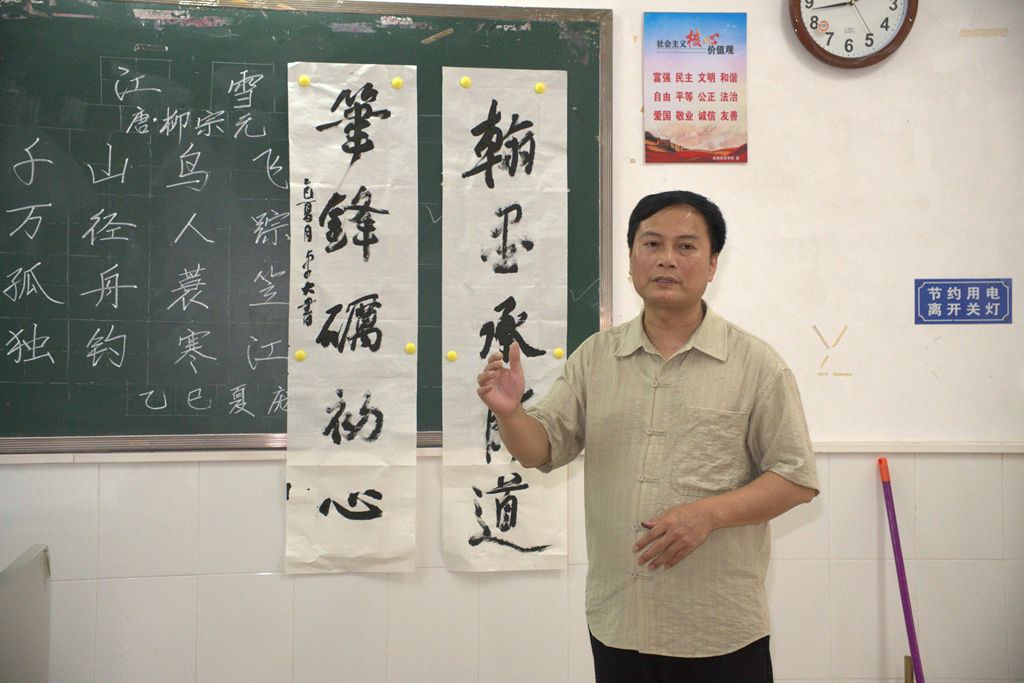 江 雪
唐·柳宗元
千 山 鸟 飞
万 径 人 踪
孤 舟 蓑 笠
独 钓 寒 江
乙 巳 夏
筆鋒礪初心
乙巳夏月
大書
翰墨承
道
社会主义核心价值观
富强 民主 文明 和谐
自由 平等 公正 法治
爱国 敬业 诚信 友善
9 8 7 6 5 4 3
节约用电
离开关灯